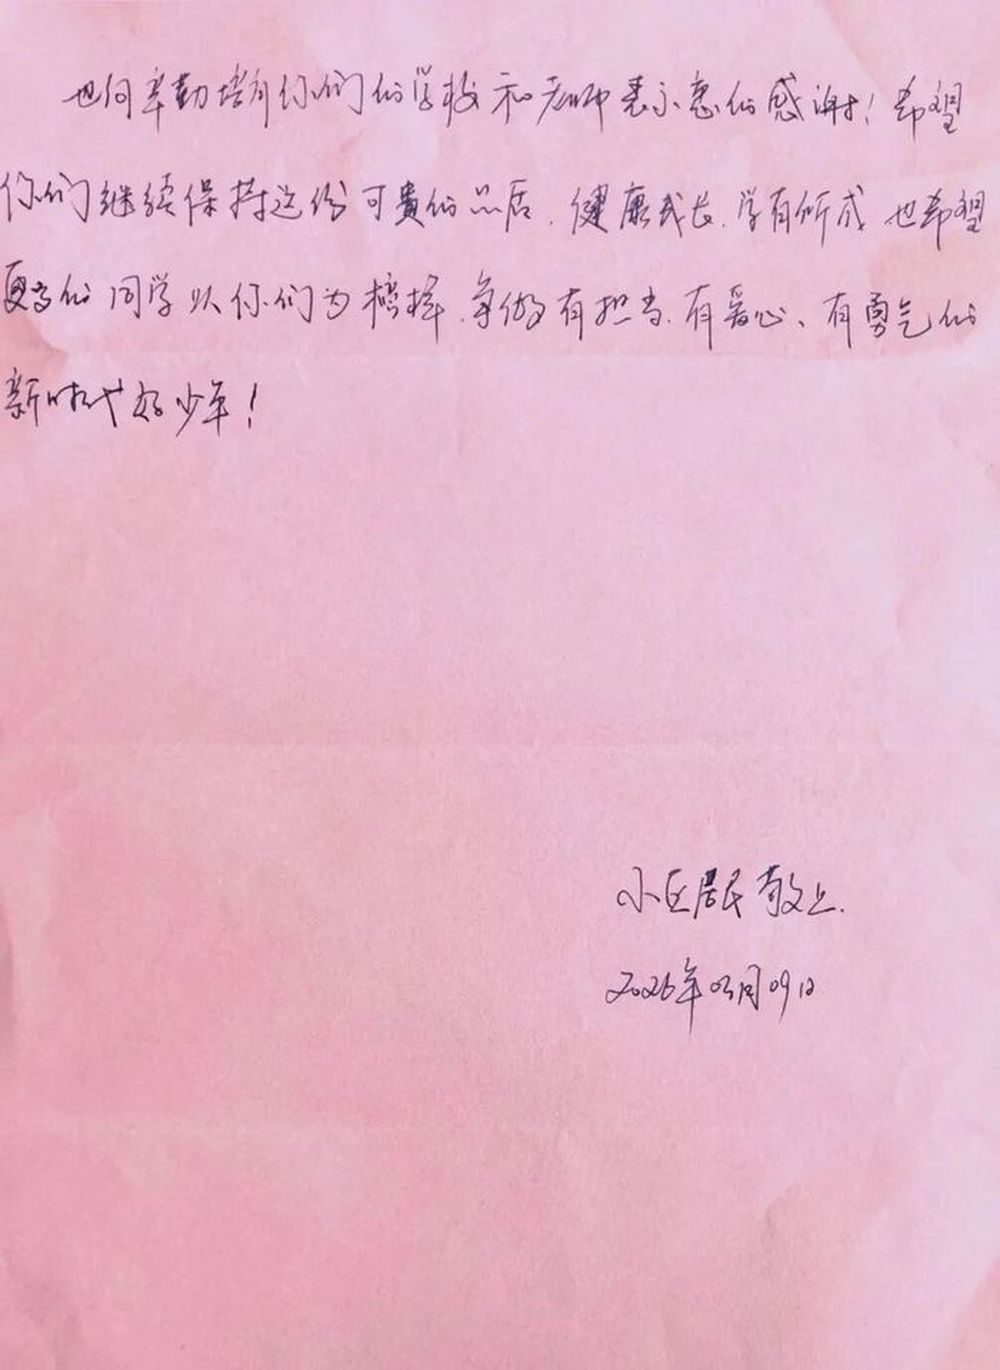 也向辛勤培育你们的学校和老师表示衷的感谢！希望
你们继续保持这份可貴的品质、健康成长、学有所成 也希望
更多的同学以你们为榜样、争做有担当、有爱心、有勇气的
新时代好少年！
小区居民敬上.
2026年03月09日